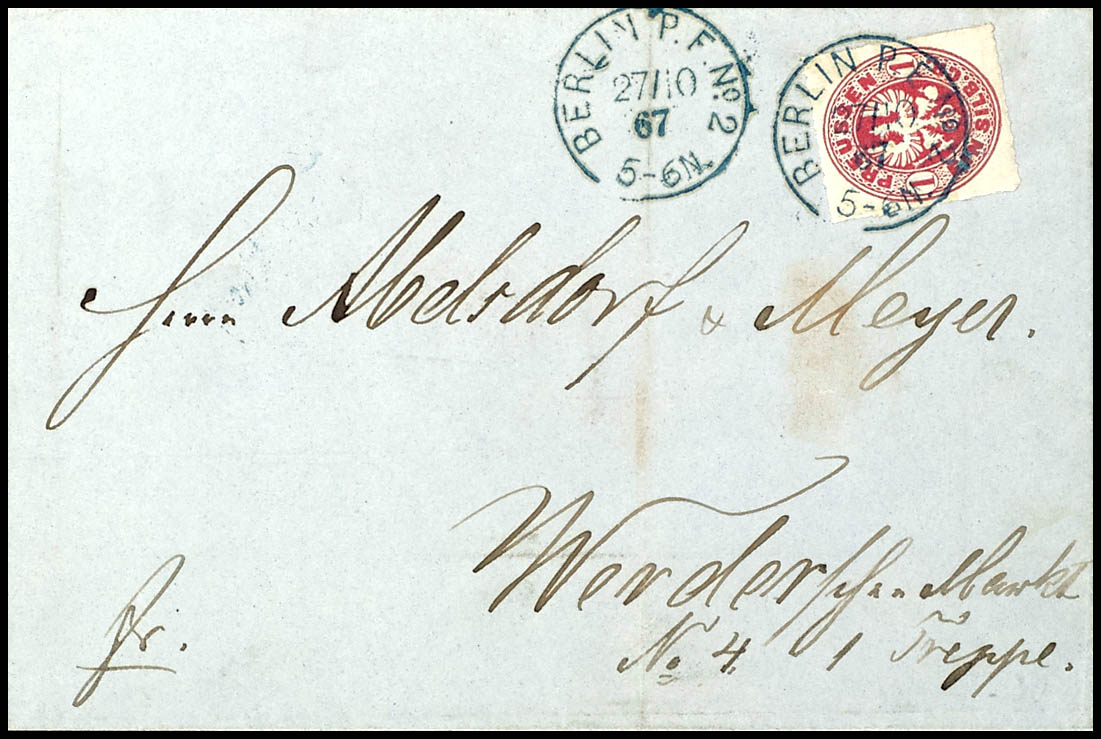 BERLIN P. E. No. 2
27/10
67
5-6N.
BERLIN P. E. No. 2
5-6N.
PREUSSEN 1 SILB. GR. 1
Herrn Abelsdorf & Meyer.
Werderschen Markt
No 4. 1 Treppe.
fr.